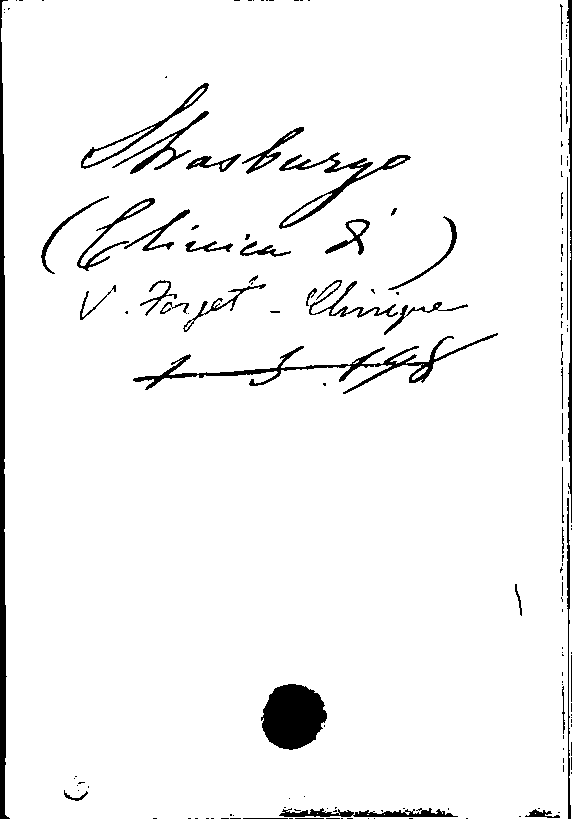 Strasburgo
(Clinica di)
V. Forget - Clinique
1. 5. 198